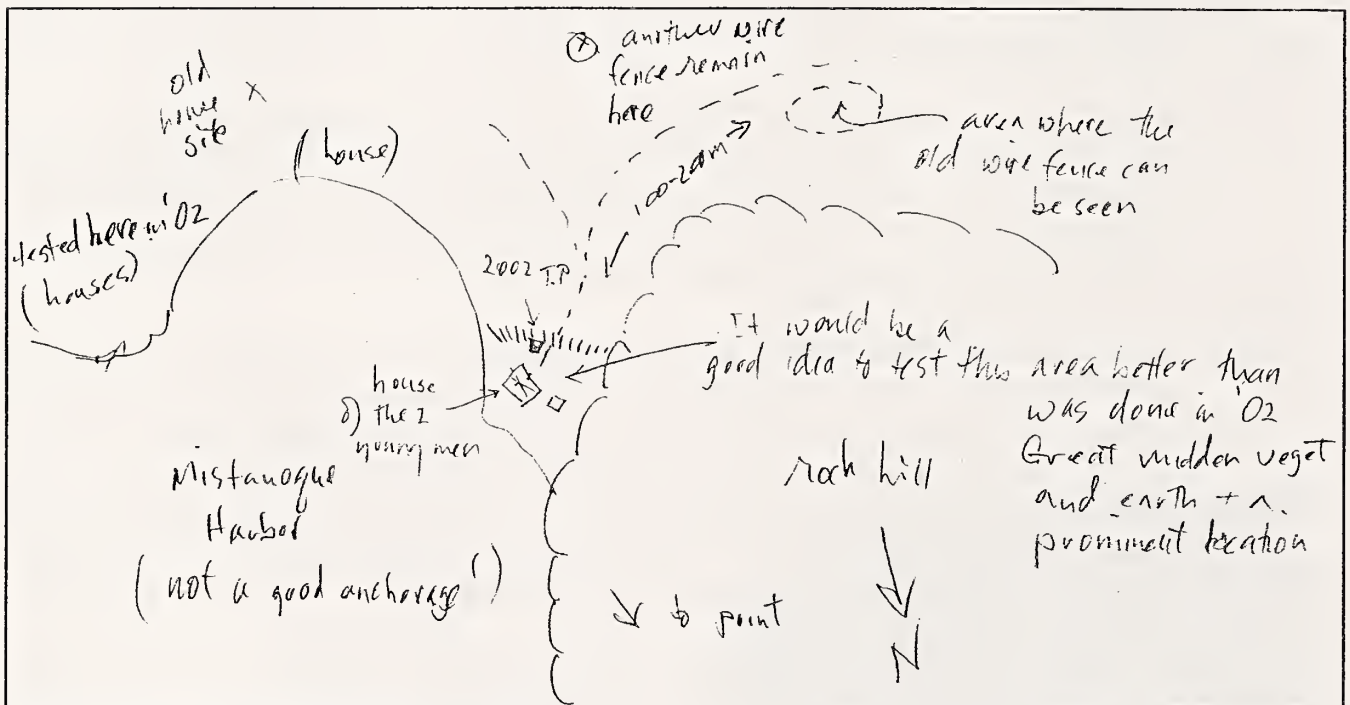 old
house
site
X
(house)
tested here in '02
(houses)
X another wire
fence remain
here
100-200m
area where the
old wire fence can
be seen
2002 T.P
house
of the 2
young men
It would be a
good idea to test this area better than
was done in '02
Great midden veget
and earth + a
prominent location
Mistanoque
Harbor
(not a good anchorage!)
rock hill
to point
N